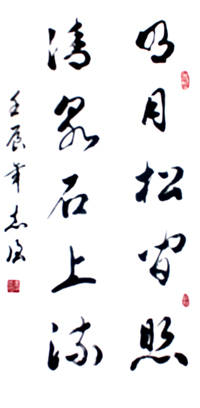 明月松间照
清泉石上流
壬辰年志强